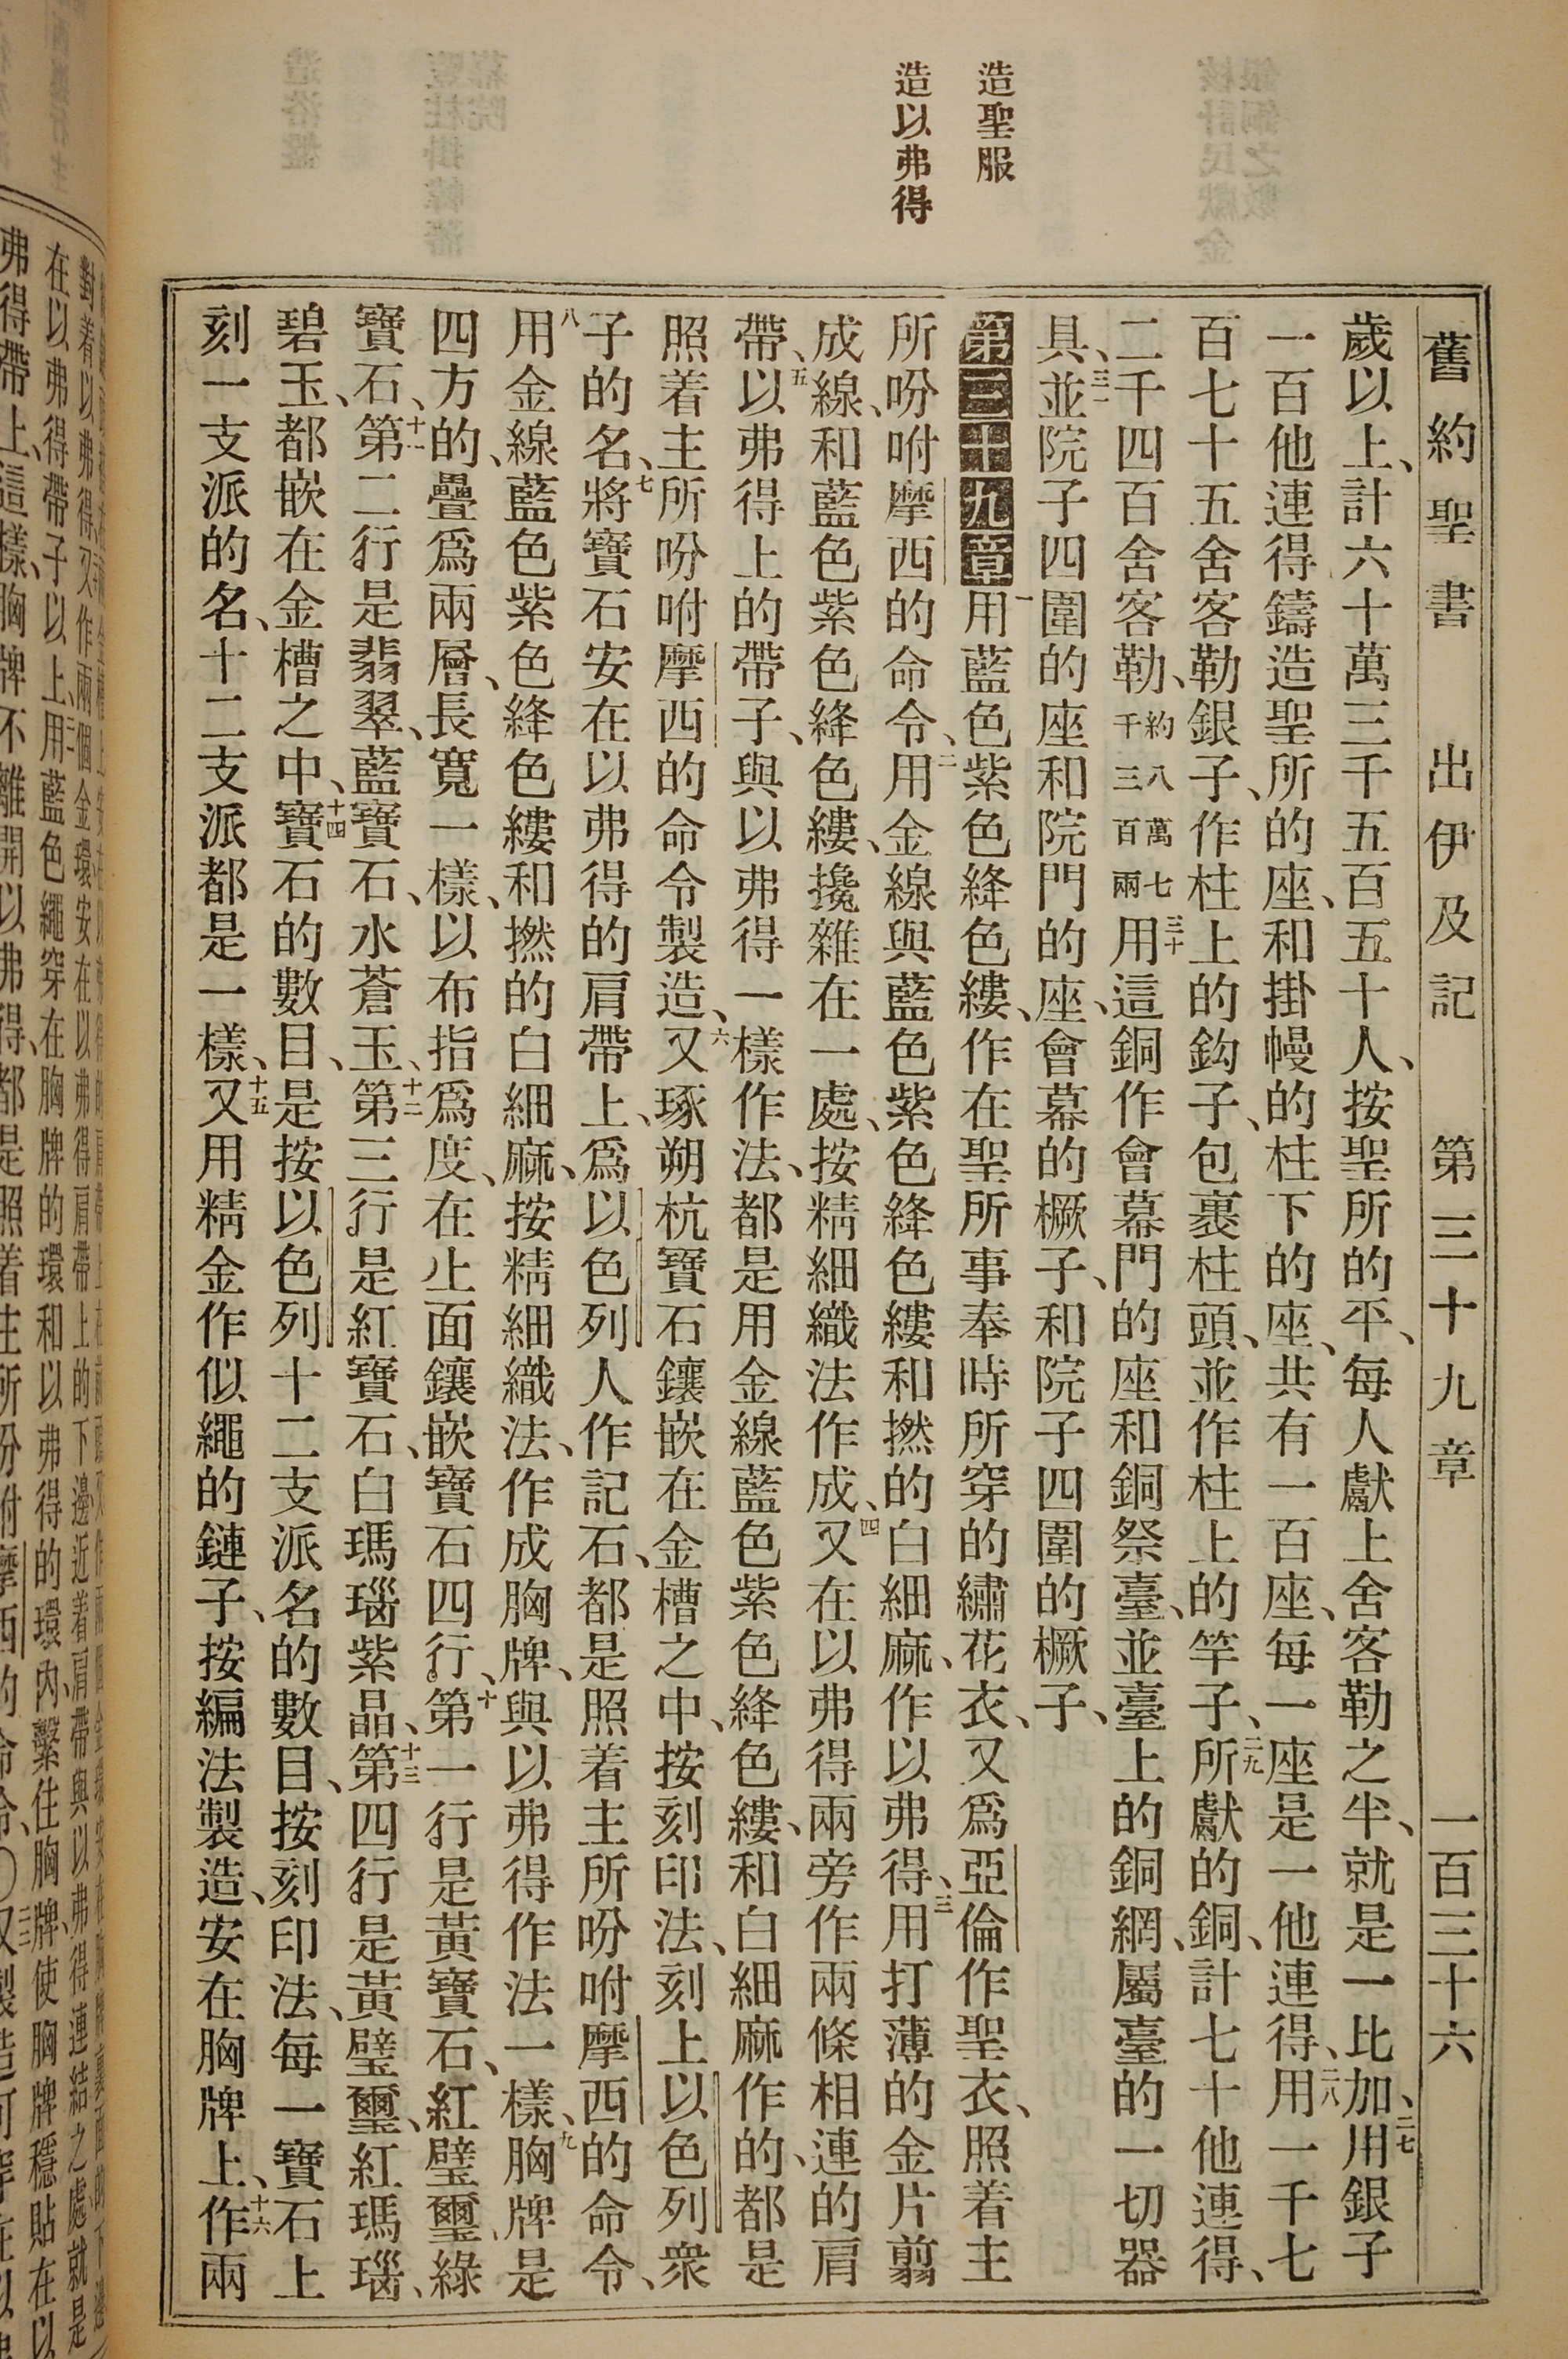 造聖服
造以弗得
舊約聖書 出伊及記 第三十九章 一百三十六
歲以上、計六十萬三千五百五十人、按聖所的平、每人獻上舍客勒之半、就是一比加、二七用銀子
一百他連得鑄造聖所的座、和掛幔的柱下的座、共有一百座、每一座是一他連得、二八用一千七
百七十五舍客勒銀子、作柱上的鈎子、包裹柱頭、並作柱上的竿子、二九所獻的銅、計七十他連得、
二千四百舍客勒、約八萬七千三百兩三十用這銅作會幕門的座和銅祭臺、並臺上的銅網、屬臺的一切器
具、三一並院子四圍的座和院門的座、會幕的橛子、和院子四圍的橛子、
第三十九章一用藍色紫色絳色縷、作在聖所事奉時所穿的繡花衣、又爲亞倫作聖衣、照着主
所吩咐摩西的命令、二用金線與藍色紫色絳色縷和撚的白細麻、作以弗得、三用打薄的金片剪
成線、和藍色紫色絳色縷、攙雜在一處、按精細織法作成、四又在以弗得兩旁作兩條相連的肩
帶、五以弗得上的帶子、與以弗得一樣作法、都是用金線藍色紫色絳色縷、和白細麻作的、都是
照着主所吩咐摩西的命令製造、六又琢朔杭寶石鑲嵌在金槽之中、按刻印法、刻上以色列衆
子的名、七將寶石安在以弗得的肩帶上、爲以色列人作記石、都是照着主所吩咐摩西的命令、
八用金線藍色紫色絳色縷和撚的白細麻、按精細織法、作成胸牌、與以弗得作法一樣、九胸牌是
四方的、疊爲兩層、長寬一樣、以布指爲度、在上面鑲嵌寶石四行、十第一行是黃寶石、紅璧璽、綠
寶石、十一第二行是翡翠、藍寶石、水蒼玉、十二第三行是紅寶石、白瑪瑙紫晶、十三第四行是黃璧璽、紅瑪瑙、
碧玉、都嵌在金槽之中、十四寶石的數目、是按以色列十二支派名的數目、按刻印法、每一寶石上
刻一支派的名、十二支派都是一樣、十五又用精金作似繩的鏈子、按編法製造、安在胸牌上、十六作兩